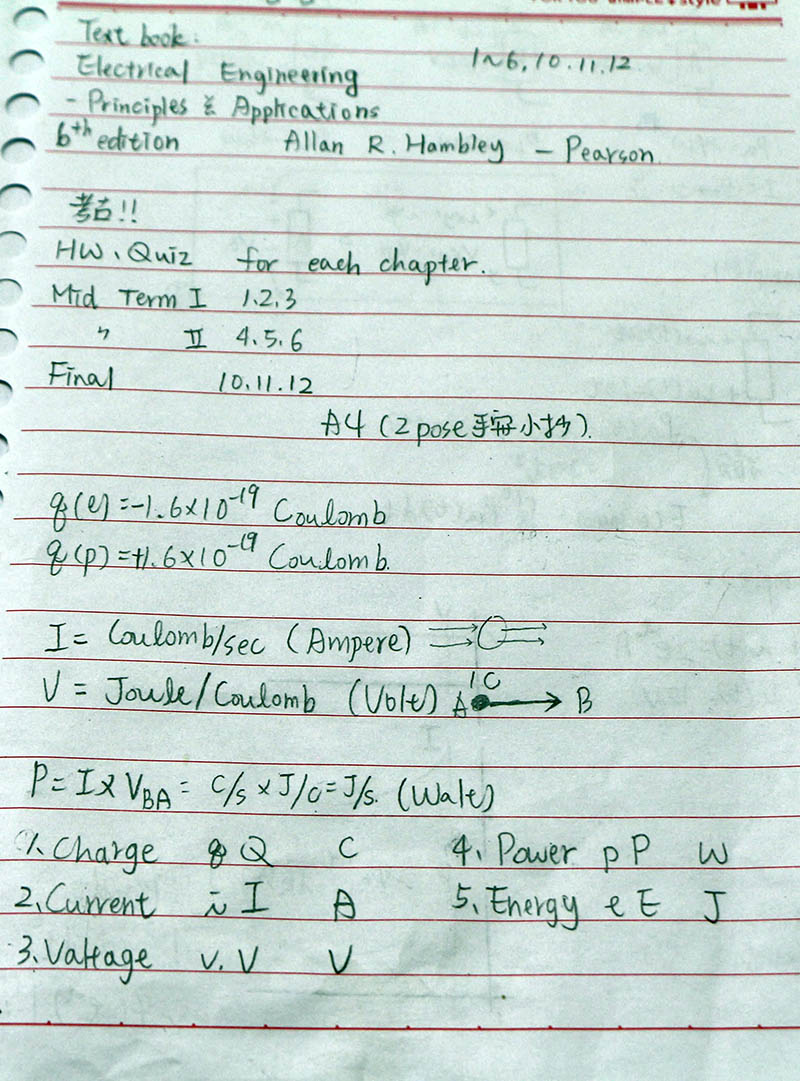 Text book:
1~6, 10. 11. 12
Electrical Engineering
- Principles & Applications
6th edition Allan R. Hambley - Pearson.
考古!!
HW、Quiz for each chapter.
Mid Term I 1.2.3
〃 II 4.5.6
Final 10.11.12
A4 (2 pose 手寫小抄).
q(e) = -1.6×10^-19 Coulomb
q(p) = +1.6×10^-19 Coulomb.
I = Coulomb/sec (Ampere)
V = Joule/Coulomb (Volt) A 1C B
P = I × V_BA = C/s × J/C = J/s. (Walt)
1. Charge q Q C 4. Power p P W
2. Current i I A 5. Energy e E J
3. Valtage v. V V